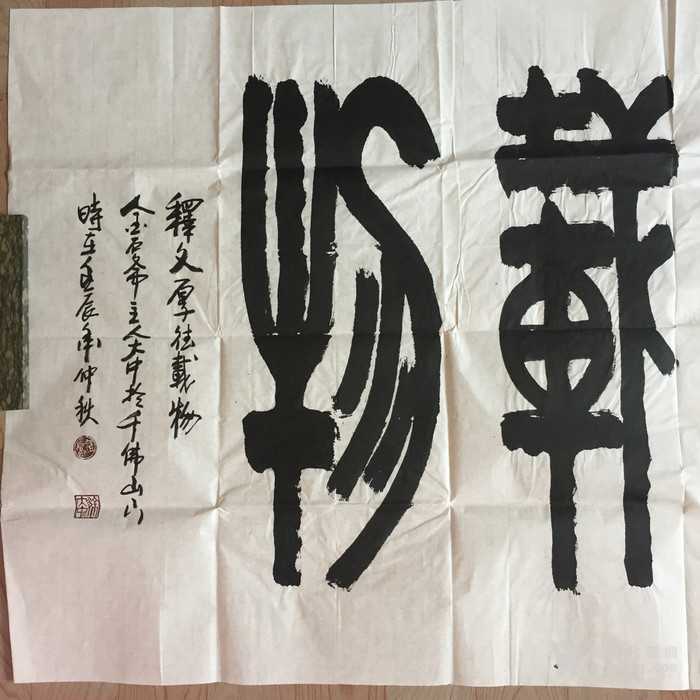 載物
釋文厚德載物
金石齋主人大中於千佛山下
時在壬辰年仲秋